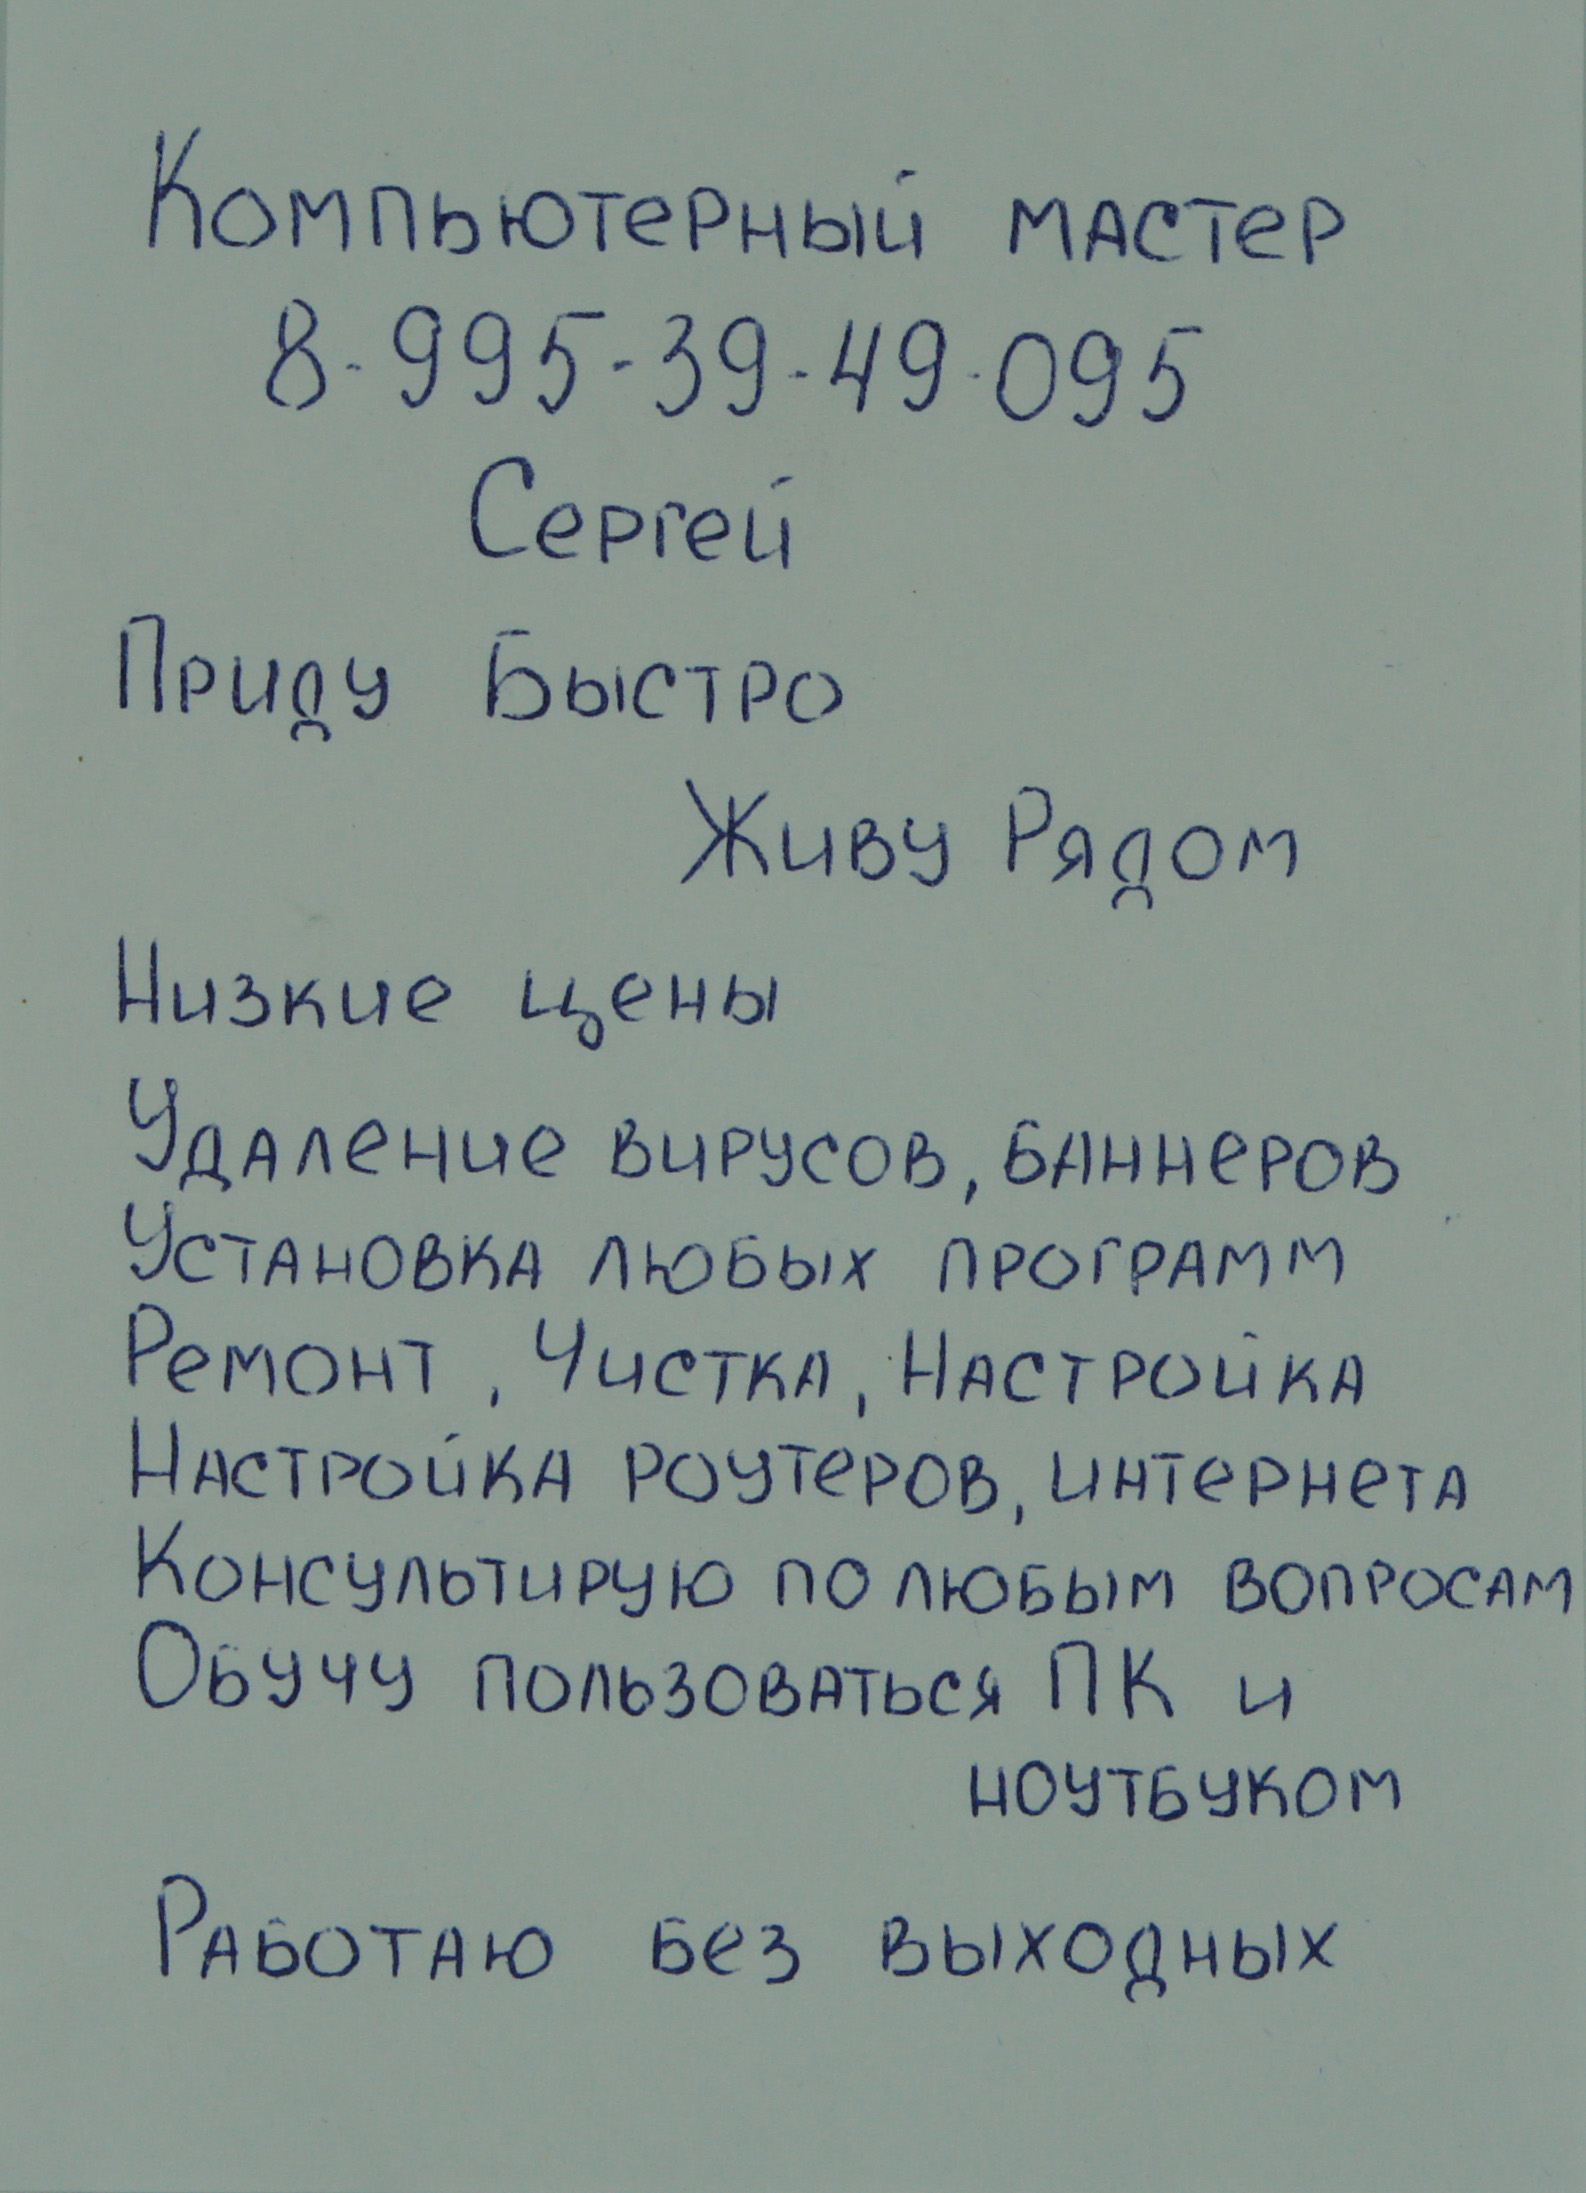 Компьютерный мастер
8-995-39-49-095
Сергей
Приду Быстро
Живу Рядом
Низкие цены
Удаление вирусов, баннеров
Установка любых программ
Ремонт, Чистка, Настройка
Настройка роутеров, интернета
Консультирую по любым вопросам
Обучу пользоваться ПК и
ноутбуком
Работаю без выходных